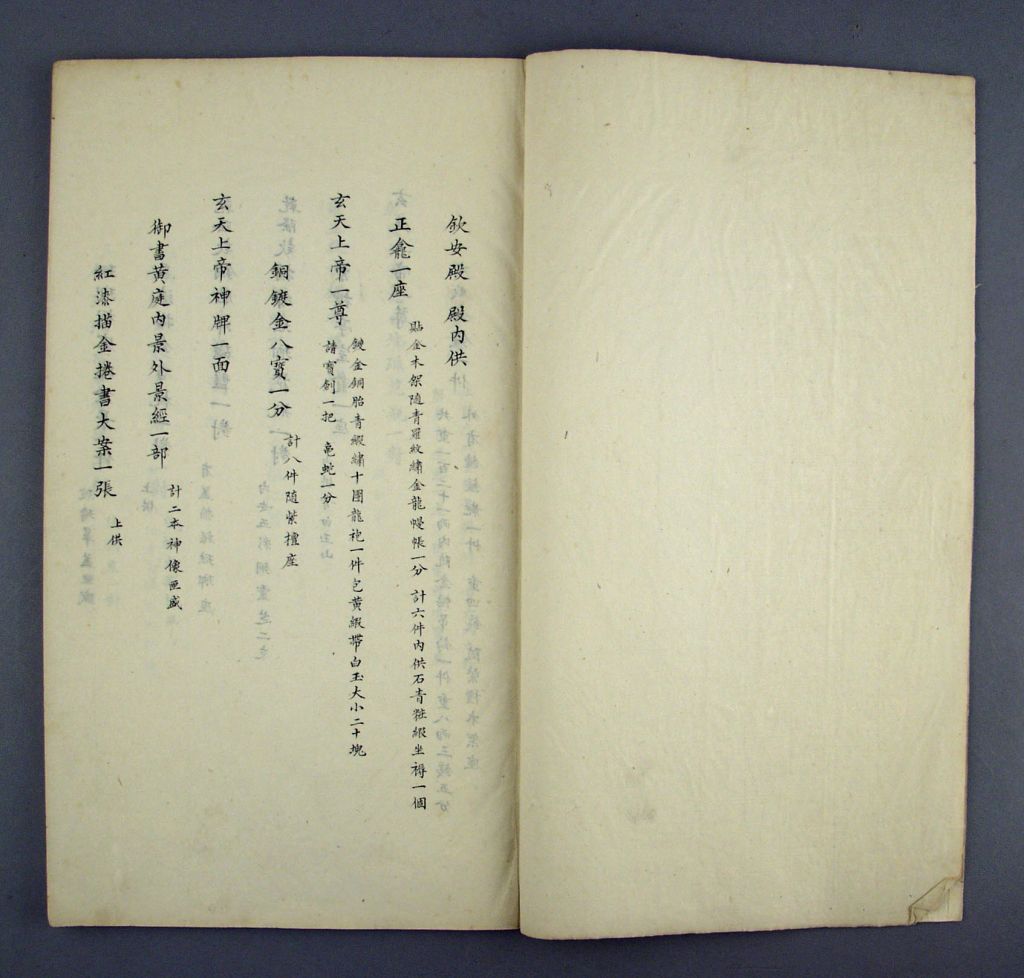 欽安殿 殿内供
正龕一座
貼金木架隨青羅紋繡金龍幔帳一分 計六件内供石青粧緞坐褥一個
玄天上帝一尊
鍍金銅胎青緞繡十團龍袍一件包黄緞帶白玉大小二十塊
請寶劍一把 龜蛇一分
銅鍍金八寶一分
計八件隨紫檀座
玄天上帝神牌一面
御書黄庭内景外景經一部
計二本神像匣盛
紅漆描金捲書大案一張
上供